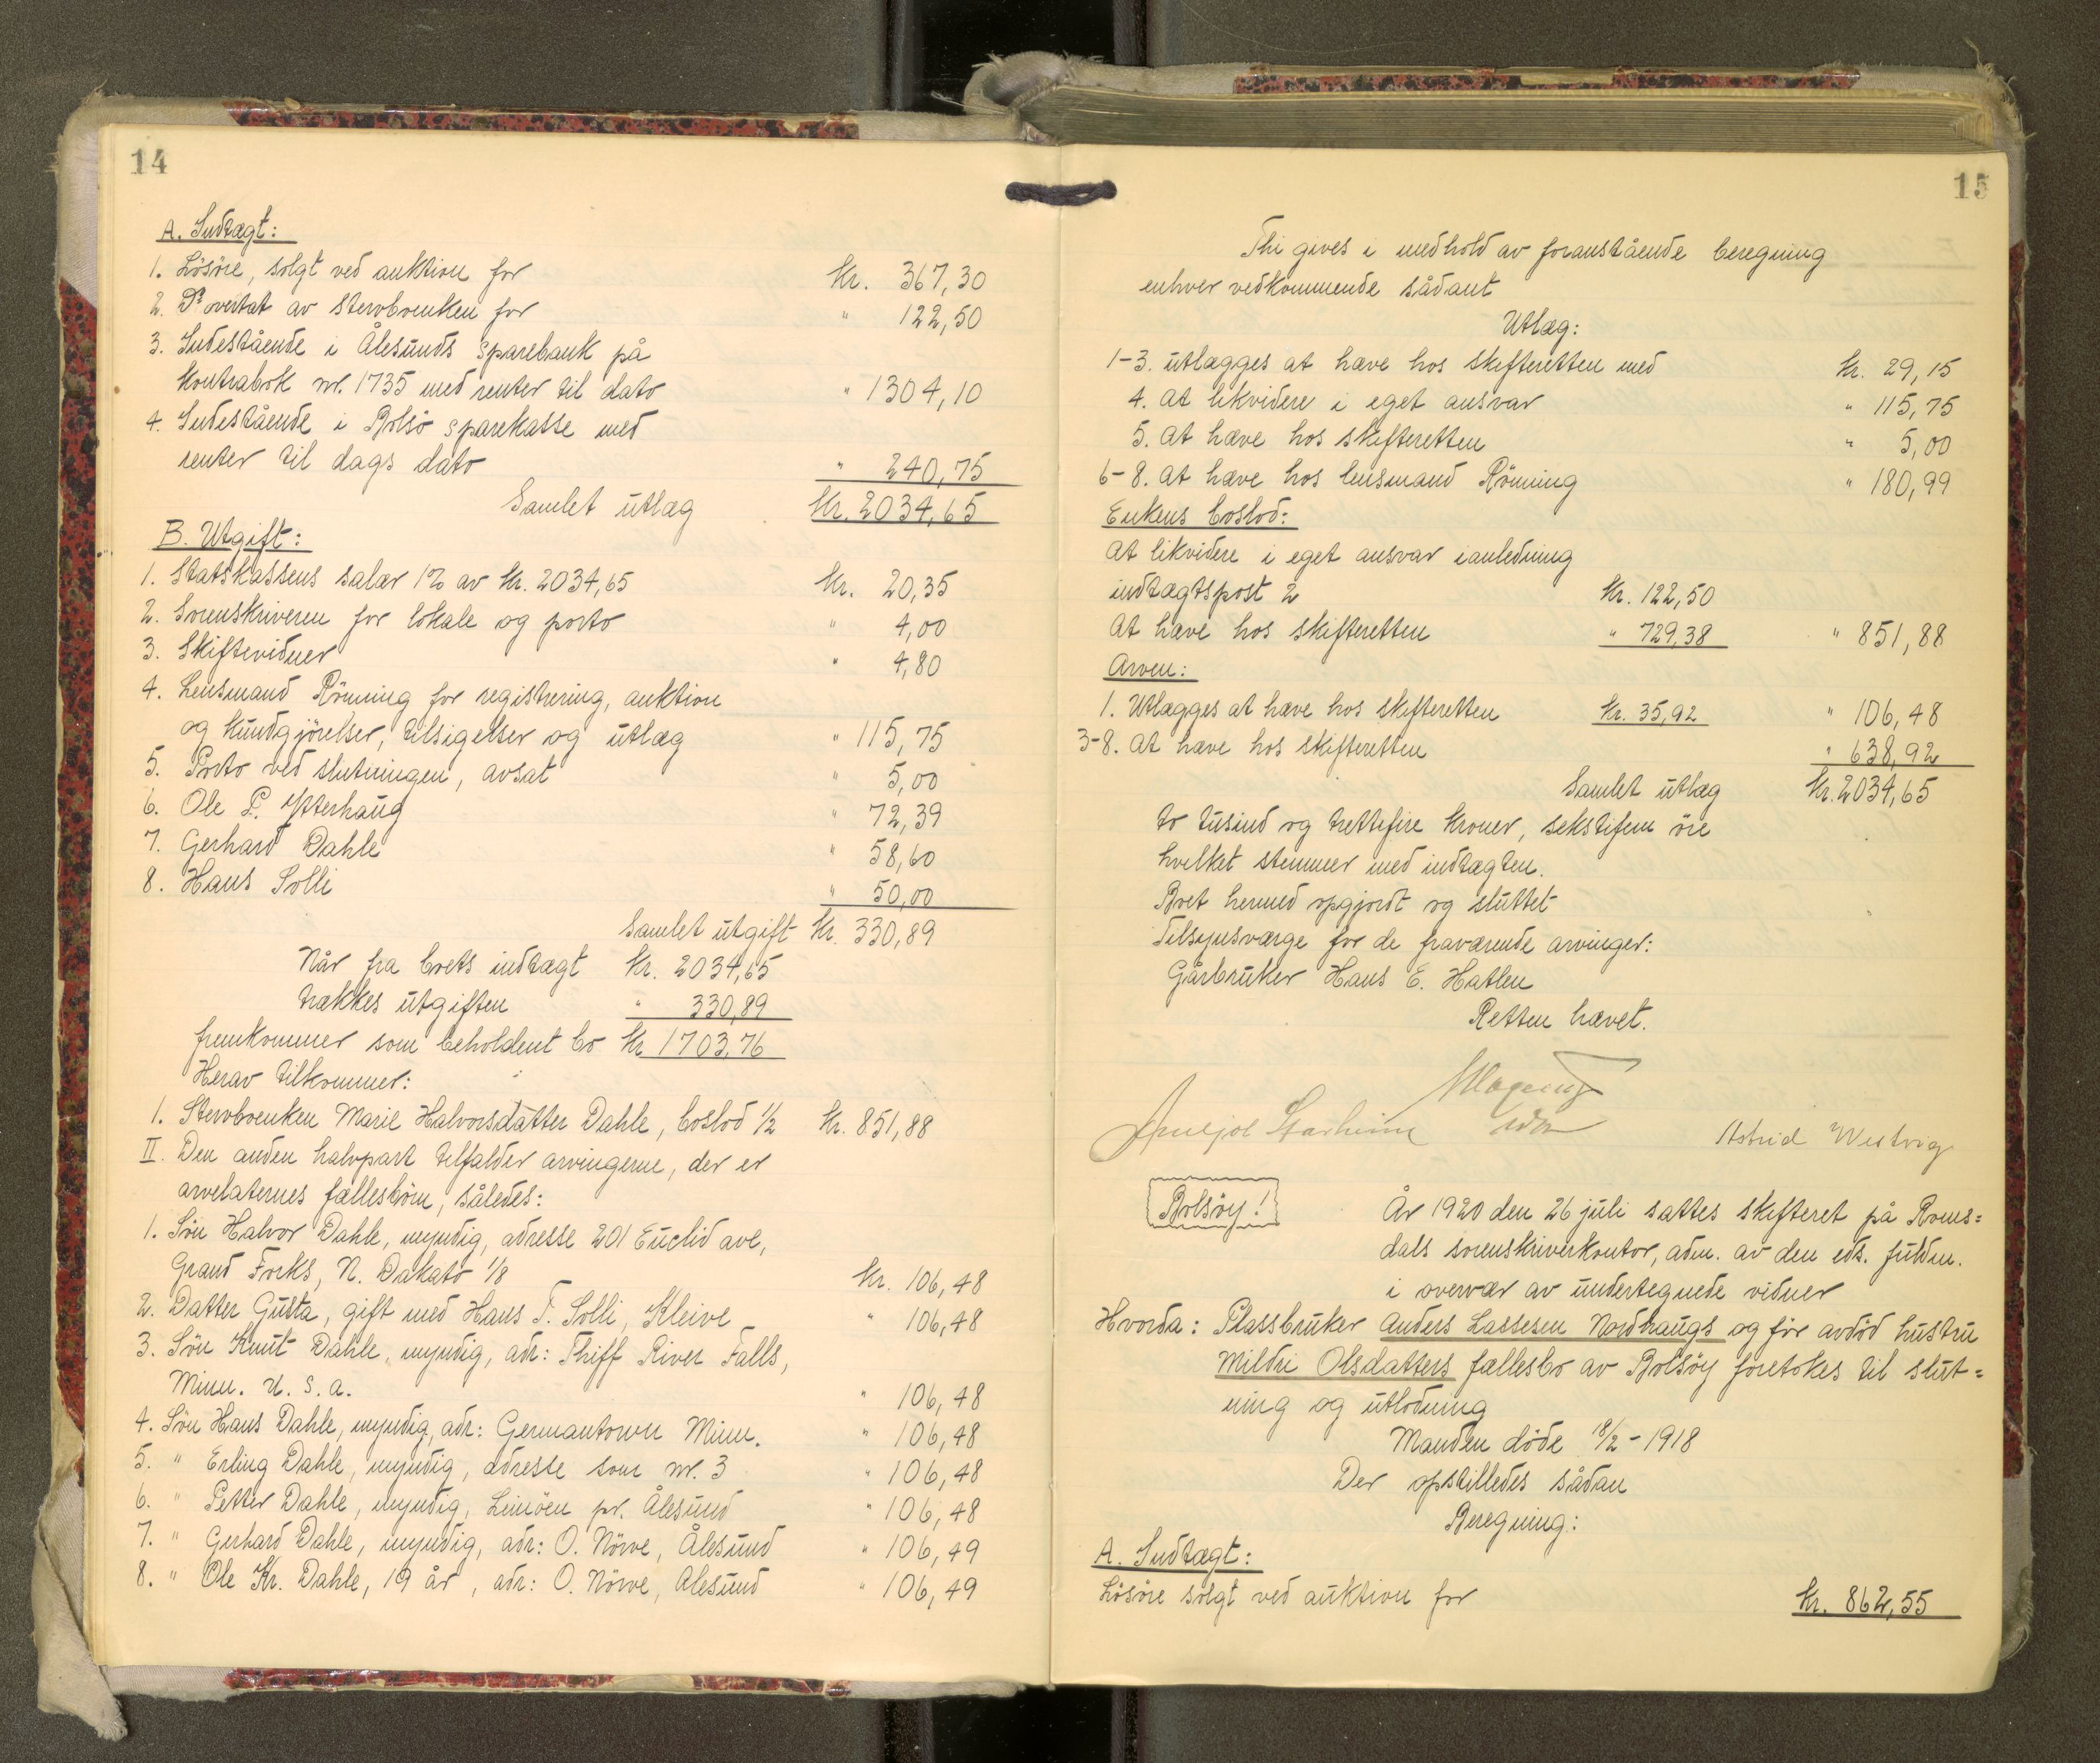 14
A. Indtægt:
1. Løsøre, solgt ved auktion for Kr. 367,30
2. Do overtat av stervboenken for " 122,50
3. Indestående i Ålesunds sparebank på
kontrabok nr. 1735 med renter til dato " 1304,10
4. Indestående i Bolsö sparekasse med
renter til dags dato " 240,75
Samlet utlæg Kr. 2034,65
B. Utgift:
1. Statskassens salær 1% av Kr. 2034,65 Kr. 20,35
2. Sorenskriveren for lokale og porto " 4,00
3. Skiftevidner " 4,80
4. Lensmand Rönning for registrering, auktion
og kundgjörelser, tilsigelser og utlæg " 115,75
5. Porto ved slutningen, avsat " 5,00
6. Ole P. Ytterhaug " 72,39
7. Gerhard Dahle " 58,60
8. Hans Solli " 50,00
Samlet utgift Kr. 330,89
Når fra boets indtægt Kr. 2034,65
trækkes utgiften " 330,89
fremkommer som beholdent bo Kr 1703,76
Herav tilkommer:
1. Stervboenken Marie Halvorsdatter Dahle, boslod 1/2 Kr. 851,88
II. Den anden halvpart tilfalder arvingerne, der er
arvelaternes fællesbörn, således:
1. Sön Halvor Dahle, myndig, adresse 201 Euclid ave,
Grand Forks, N. Dakato 1/8 Kr. 106,48
2. Datter Gusta, gift med Hans T. Solli, Kleive " 106,48
3. Sön Knut Dahle, myndig, adr: Thiff River Falls,
Minn. U.S.a. " 106,48
4. Sön Hans Dahle, myndig, adr: Germantown Minn. " 106,48
5. " Erling Dahle, myndig, adresse som nr. 3 " 106,48
6. " Petter Dahle, myndig, Leinöen pr. Ålesund " 106,48
7. " Gerhard Dahle, myndig, adr: O. Nörve, Ålesund " 106,49
8. " Ole Kr. Dahle, 19 år, adr: O. Nörve, Ålesund " 106,49
15
Thi gives i medhold av foranstående beregning
enhver vedkommende sådant
Utlæg:
1-3. utlægges at hæve hos skifteretten med Kr. 29,15
4. at likvidere i eget ansvar " 115,75
5. at hæve hos skifteretten " 5,00
6-8. at hæve hos lensmand Rönning " 180,99
Enkens boslod:
at likvidere i eget ansvar ianledning
indtægtspost 2 Kr. 122,50
at hæve hos skifteretten " 729,38 " 851,88
Arven:
1. Utlægges at hæve hos skifteretten Kr. 35,92 " 106,48
3-8. at hæve hos skifteretten " 638,92
Samlet utlæg Kr. 2034,65
to tusind og trettefire kroner, sekstifem öre
hvilket stemmer med indtægten.
Boet hermed opgjordt og sluttet
Tilsynsværge for de fraværende arvinger:
Gårbruker Hans E. Hatlen
Retten hævet.
Astrid Westvig
Bolsöy!
År 1920 den 26 juli sattes skifteret på Roms=
dals sorenskriverkontor, adm. av den eds. fuldm.
i overvær av undertegnede vidner
Hvorda: Plassbruker Anders Lassesen Nordhaugs og för avdöd hustru
Mildri Olsdatters fællesbo av Bolsöy foretokes til slut=
ning og utlodning
Manden döde 18/2 - 1918
Der opstilledes sådan
Beregning:
A. Indtægt:
Lösöre solgt ved auktion for Kr. 862,55